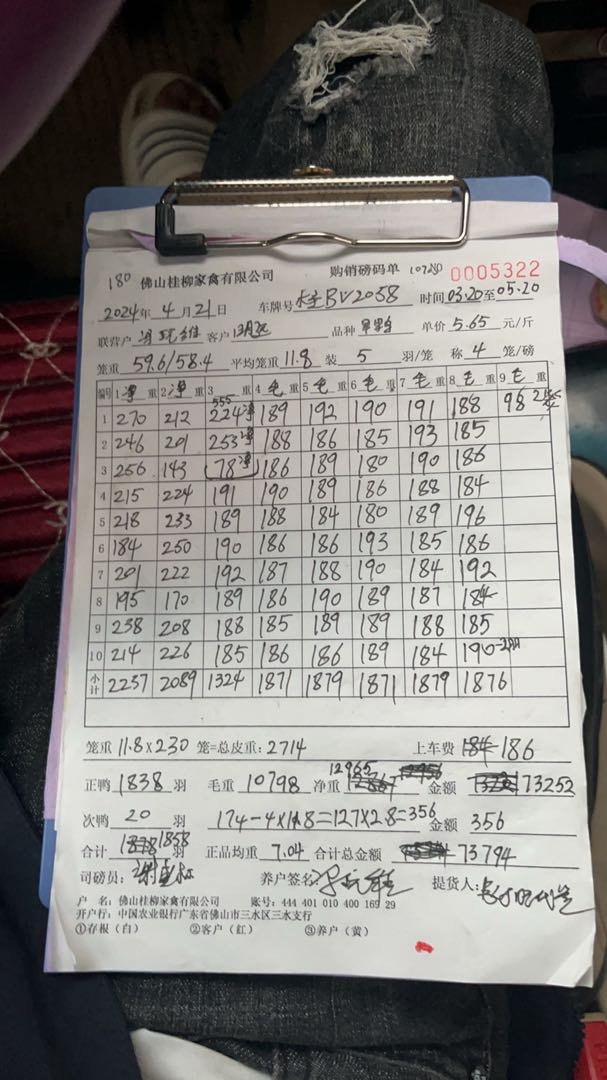 180 佛山桂柳家禽有限公司 购销磅码单 0005322
2024年 4月21日 车牌号 BV2058 时间 03.20至05.20
联营户 客户 品种 单价 5.65 元/斤
笼重 59.6/58.4 平均笼重 11.8 装 5 羽/笼 称 4 笼/磅
编号 1 净 重 2 净 重 3 重 4 毛 重 5 毛 重 6 毛 重 7 毛 重 8 毛 重 9 毛 重
555
1 270 212 224净 189 192 190 191 188 98
2 246 201 253净 188 186 185 193 185
3 256 143 78净 186 189 180 190 186
4 215 224 191 190 189 186 188 184
5 218 233 189 188 184 180 189 196
6 184 250 190 186 186 193 185 186
7 201 222 192 187 188 190 184 192
8 195 170 189 186 190 189 187 184
9 238 208 188 185 189 189 188 185
10 214 226 185 186 186 189 184 190
小计 2237 2089 1324 1871 1879 1871 1879 1876
笼重 11.8×230 笼=总皮重: 2714 上车费 184 186
正鸭 1838 羽 毛重 10798 净重 12965 金额 73252
次鸭 20 羽 174-4×11.8=127×2.8=356 金额 356
合计 1858 羽 正品均重 7.04 合计总金额 73794
司磅员: 养户签名: 提货人:
户 名: 佛山桂柳家禽有限公司 账号: 444 401 010 400 169 29
开户行: 中国农业银行广东省佛山市三水区三水支行
①存根（白） ②客户（红） ③养户（黄）